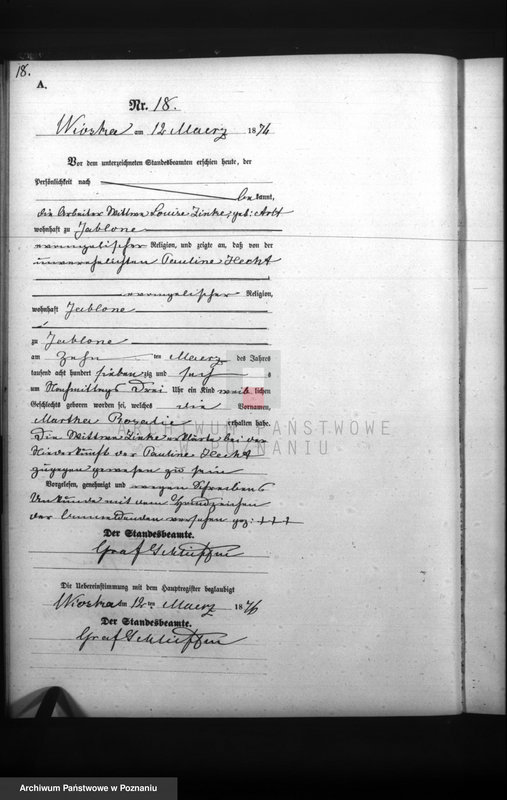 18.
A.
Nr. 18.
Wioska am 12 Maerz 1876
Vor dem unterzeichneten Standesbeamten erschien heute, der
Persönlichkeit nach
be kannt,
die Arbeiter Wittwe Louise Zinke, geb:
wohnhaft zu Jablone
evangelischer Religion, und zeigte an, daß von der
unverehelichten Pauline Hecht
evangelischer Religion,
wohnhaft Jablone
zu Jablone
am Zehn ten Maerz des Jahres
tausend acht hundert sieben zig und sechs
um Nachmittags Drei Uhr ein Kind weib lichen
Geschlechts geboren worden sei, welches die Vornamen
Martha Rosalie erhalten habe.
Die Wittwe Zinke erklärte bei der
Niederkunft der Pauline Hecht
zugegen gewesen zu sein
Vorgelesen, genehmigt und wegen Schreibens
Unkunde mit dem Handzeichen
der Anmeldenden versehen gez: +++
Der Standesbeamte.
Graf Schlieffen
Die Uebereinstimmung mit dem Hauptregister beglaubigt
Wioska am 12 ten Maerz 1876
Der Standesbeamte.
Graf Schlieffen
ARCHIWUM PAŃSTWOWE
W POZNANIU
Archiwum Państwowe w Poznaniu